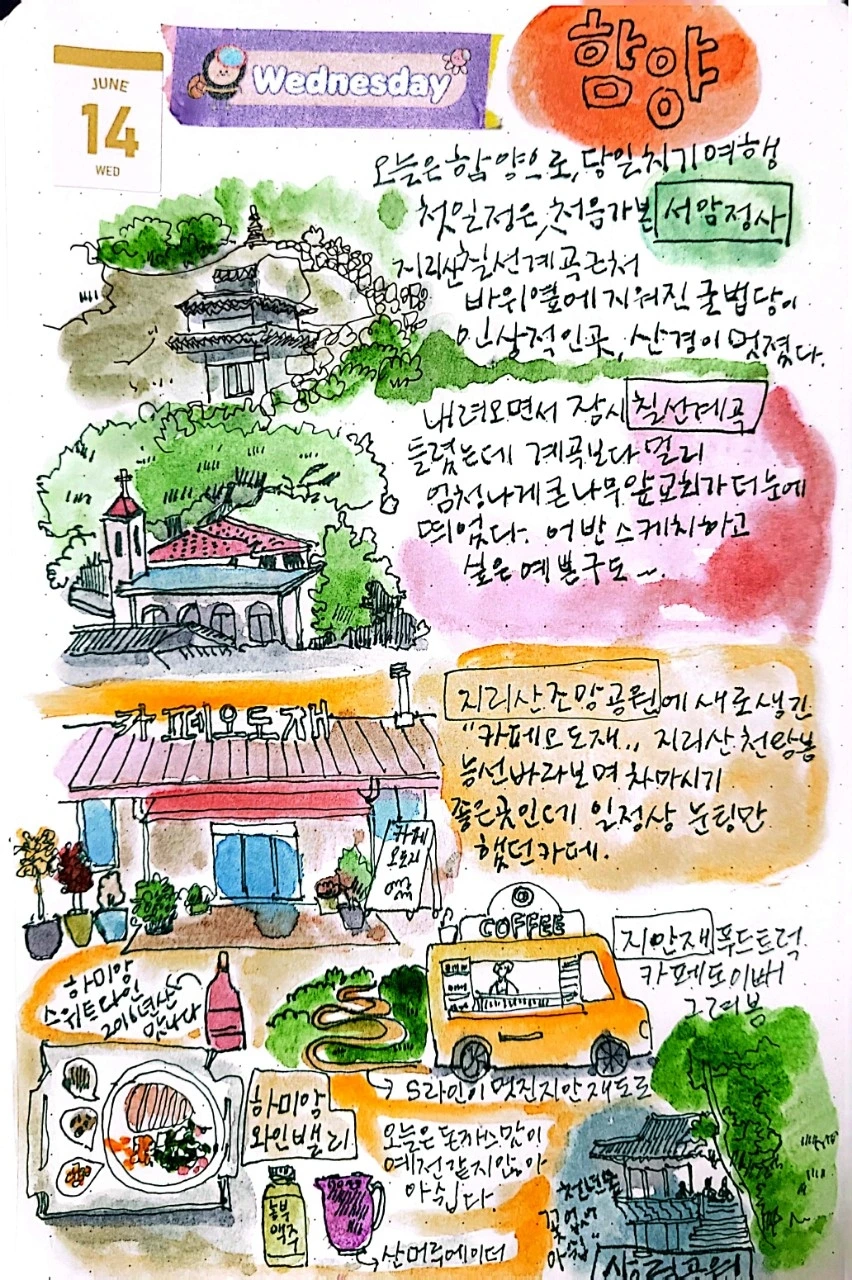 JUNE
14
WED
Wednesday
함양
오늘은 함양으로, 당일치기여행
첫일정은, 처음가본 서암정사
지리산칠선계곡근처
바위옆에 지워진 굴법당이
인상적인곳, 산경이 멋졌다.
내려오면서 잠시 칠산계곡
들렸는데 계곡보다 멀리
엄청나게큰나무앞교회가 더 눈에
띄었다. 어반스케치하고
싶은 예쁜구도~
지리산조망공원에 새로생긴
"카페오도재" 지리산천왕봉
능선바라보며 차마시기
좋은곳인데 일정상 눈팅만
했던카페.
카페오도재
카페
오도재
COFFEE
지안재푸드트럭
카페도이뻐
그려봄
하미앙
스위트와인
2016년산
맛나다
S라인이 멋진지안재도로
하미앙
와인밸리
오늘은 돈까스맛이
예전같지않아
아쉽다.
농부
맥주
산머루에이더
천년의
꽃없어
아쉽
상림공원